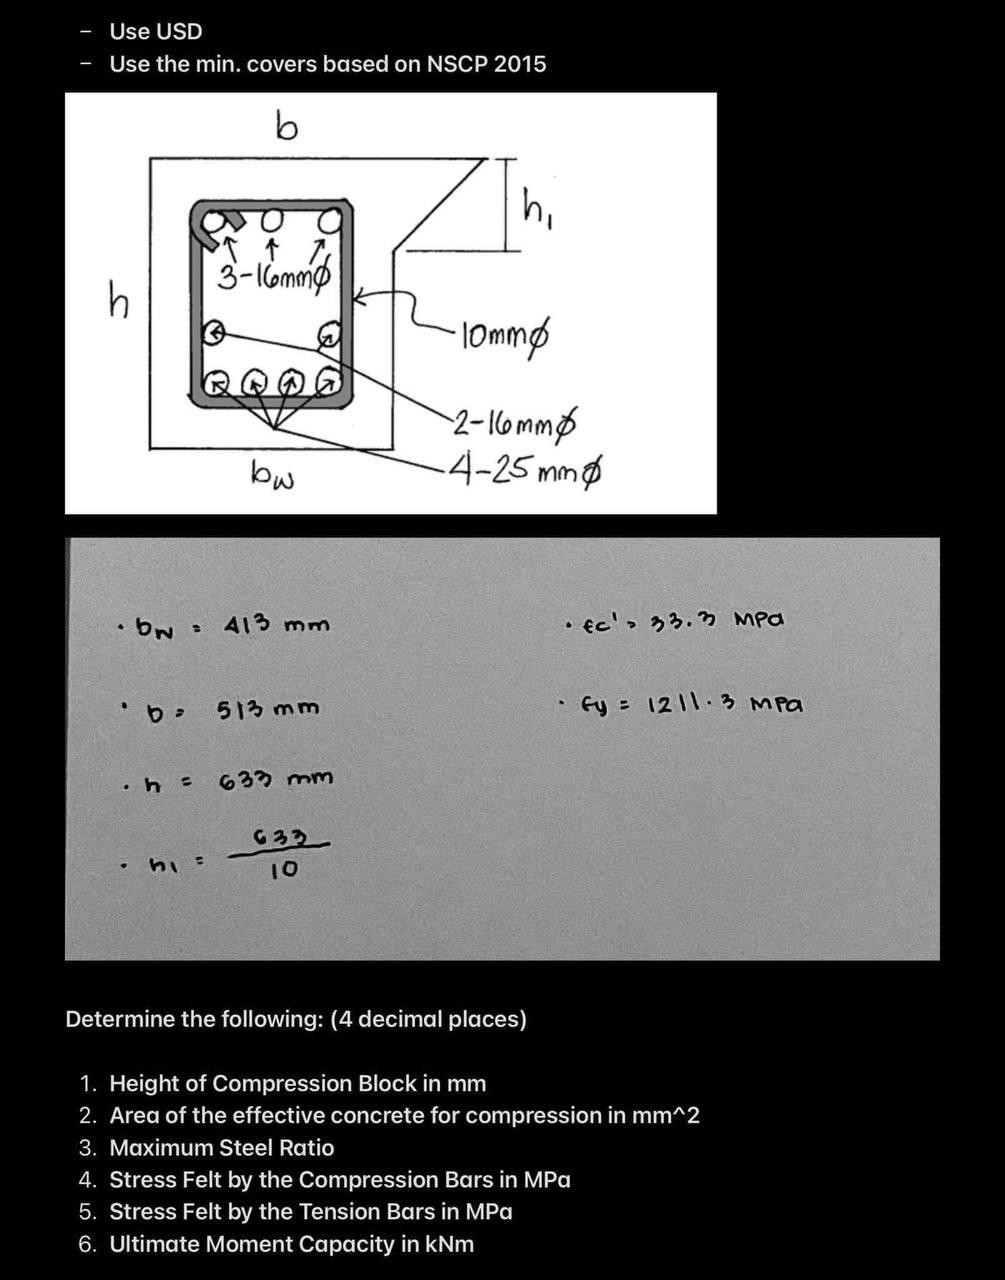 - Use USD
- Use the min. covers based on NSCP 2015
b
h₁
3-16mmϕ
h
10mmϕ
2-16mmϕ
bw
4-25mmϕ
· bw = 413 mm
· fc' = 33.3 MPa
· b = 513 mm
· fy = 1211.3 MPa
· h = 633 mm
· h₁ = 633
10
Determine the following: (4 decimal places)
1. Height of Compression Block in mm
2. Area of the effective concrete for compression in mm^2
3. Maximum Steel Ratio
4. Stress Felt by the Compression Bars in MPa
5. Stress Felt by the Tension Bars in MPa
6. Ultimate Moment Capacity in kNm